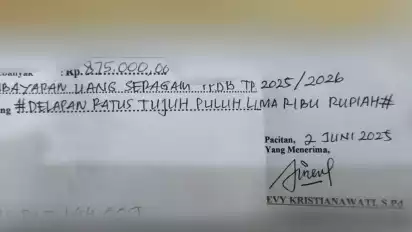 : Rp. 875.000,00
BAYARAN UANG SERAGAM TP 2025/2026
#DELAPAN RATUS TUJUH PULUH LIMA RIBU RUPIAH#
Pacitan, 2 JUNI 2025
Yang Menerima,
EVY KRISTIANAWATI, S.Pd